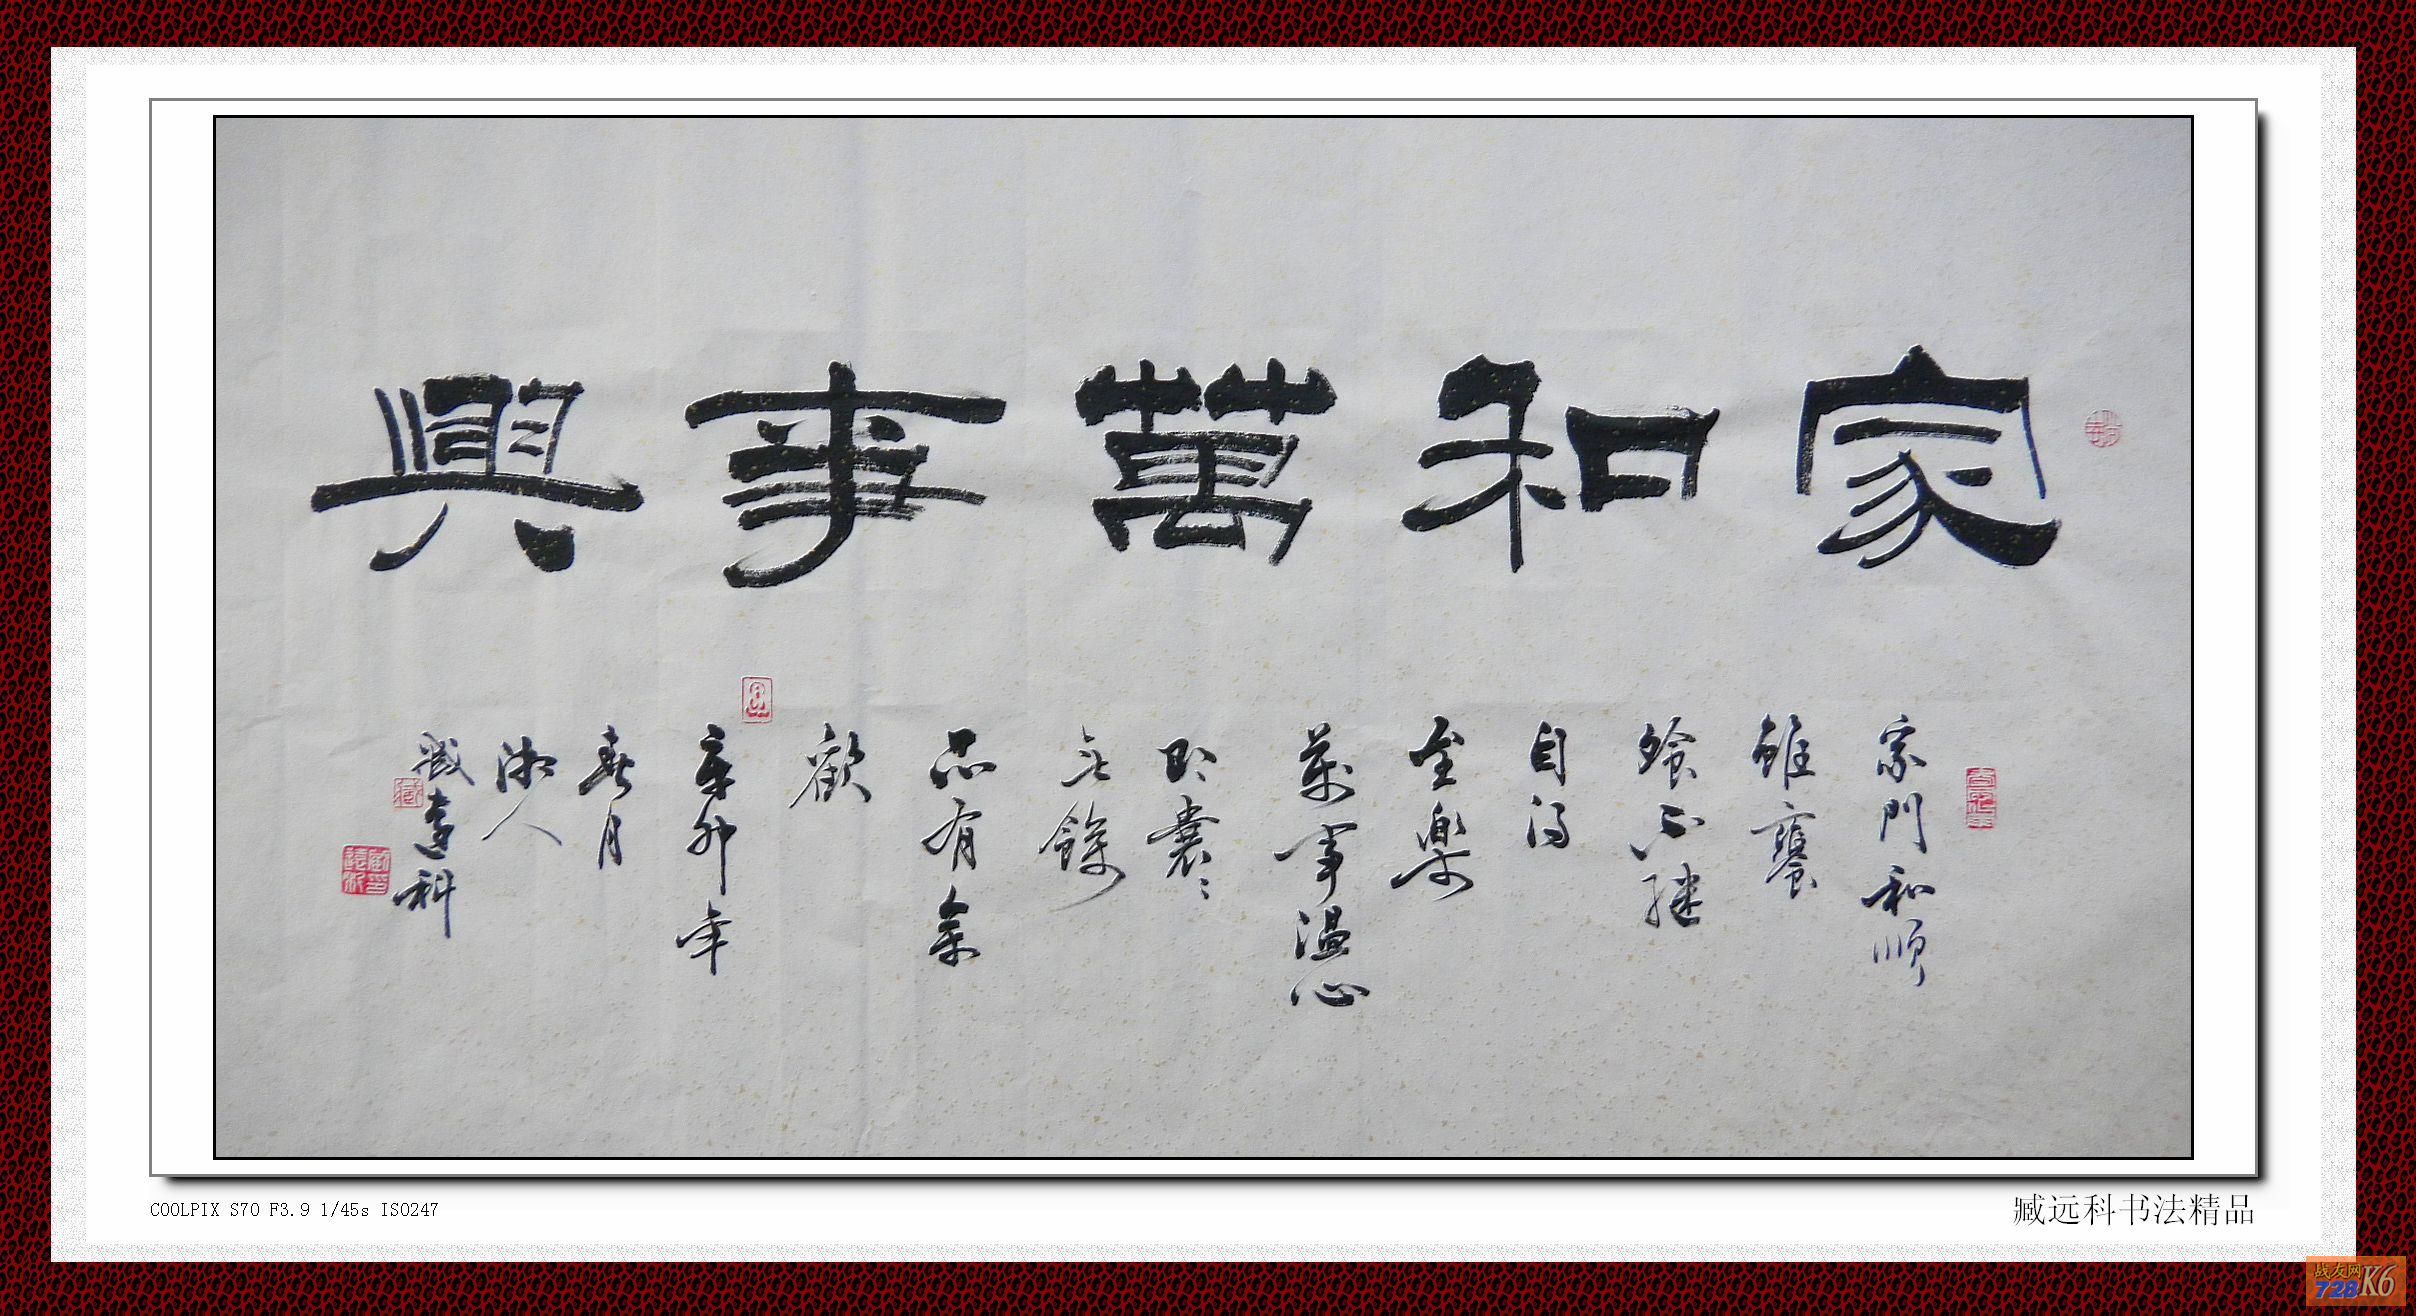 家和萬事興
家門和順
雖饔
飧不繼
自得
至樂
萬事温心
即囊
無餘
亦有余
歡
辛卯年
春月
湘人
臧遠科
COOLPIX S70 F3.9 1/45s ISO247
臧远科书法精品
战友网
728 K6